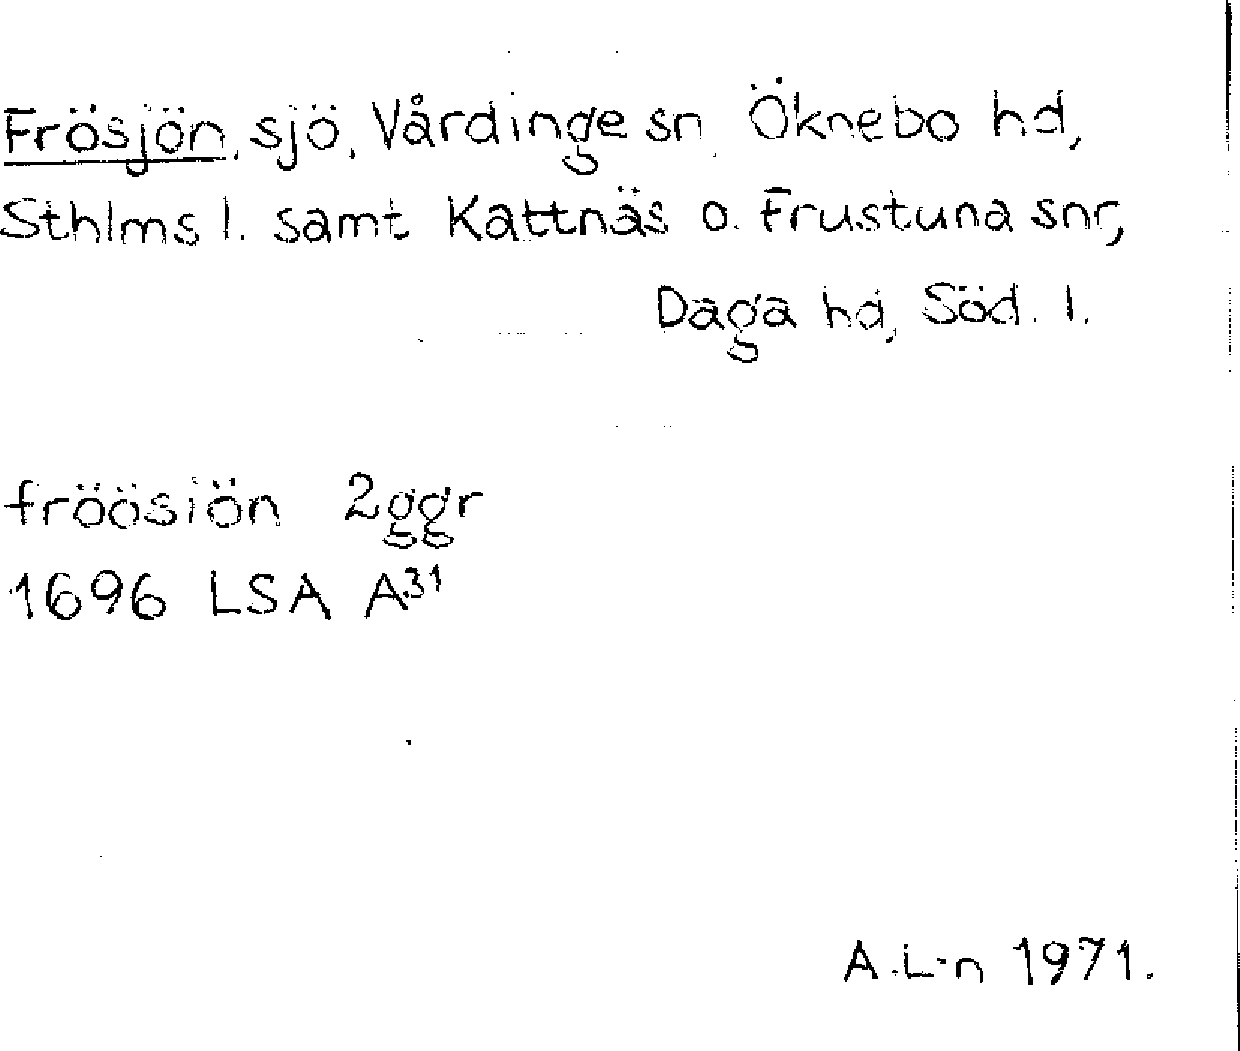 Frösjön, sjö, Vårdinge sn, Öknebo hd,
Sthlms l. samt Kattnäs o. Frustuna snr,
Daga hd, Söd. l.
fröösiön 2ggr
1696 LSA A31
A.L-n 1971.